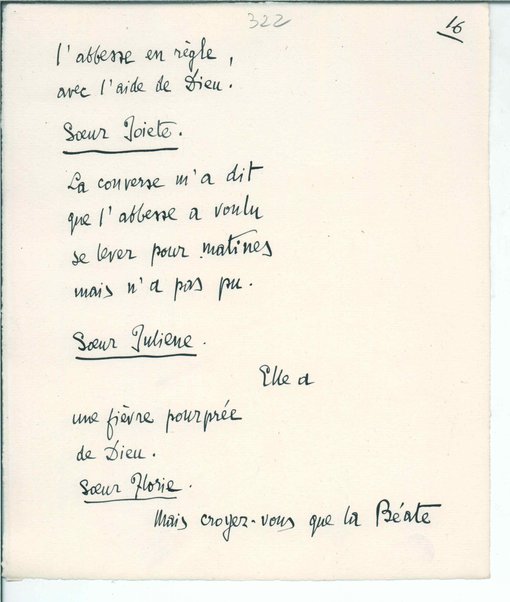 322
16
l'abbesse en règle,
avec l'aide de Dieu.
Sœur Joiete.
La converse m'a dit
que l'abbesse a voulu
se lever pour matines
mais n'a pas pu.
Sœur Juliene.
Elle a
une fièvre pourprée
de Dieu.
Sœur Florie.
Mais croyez-vous que la Béate